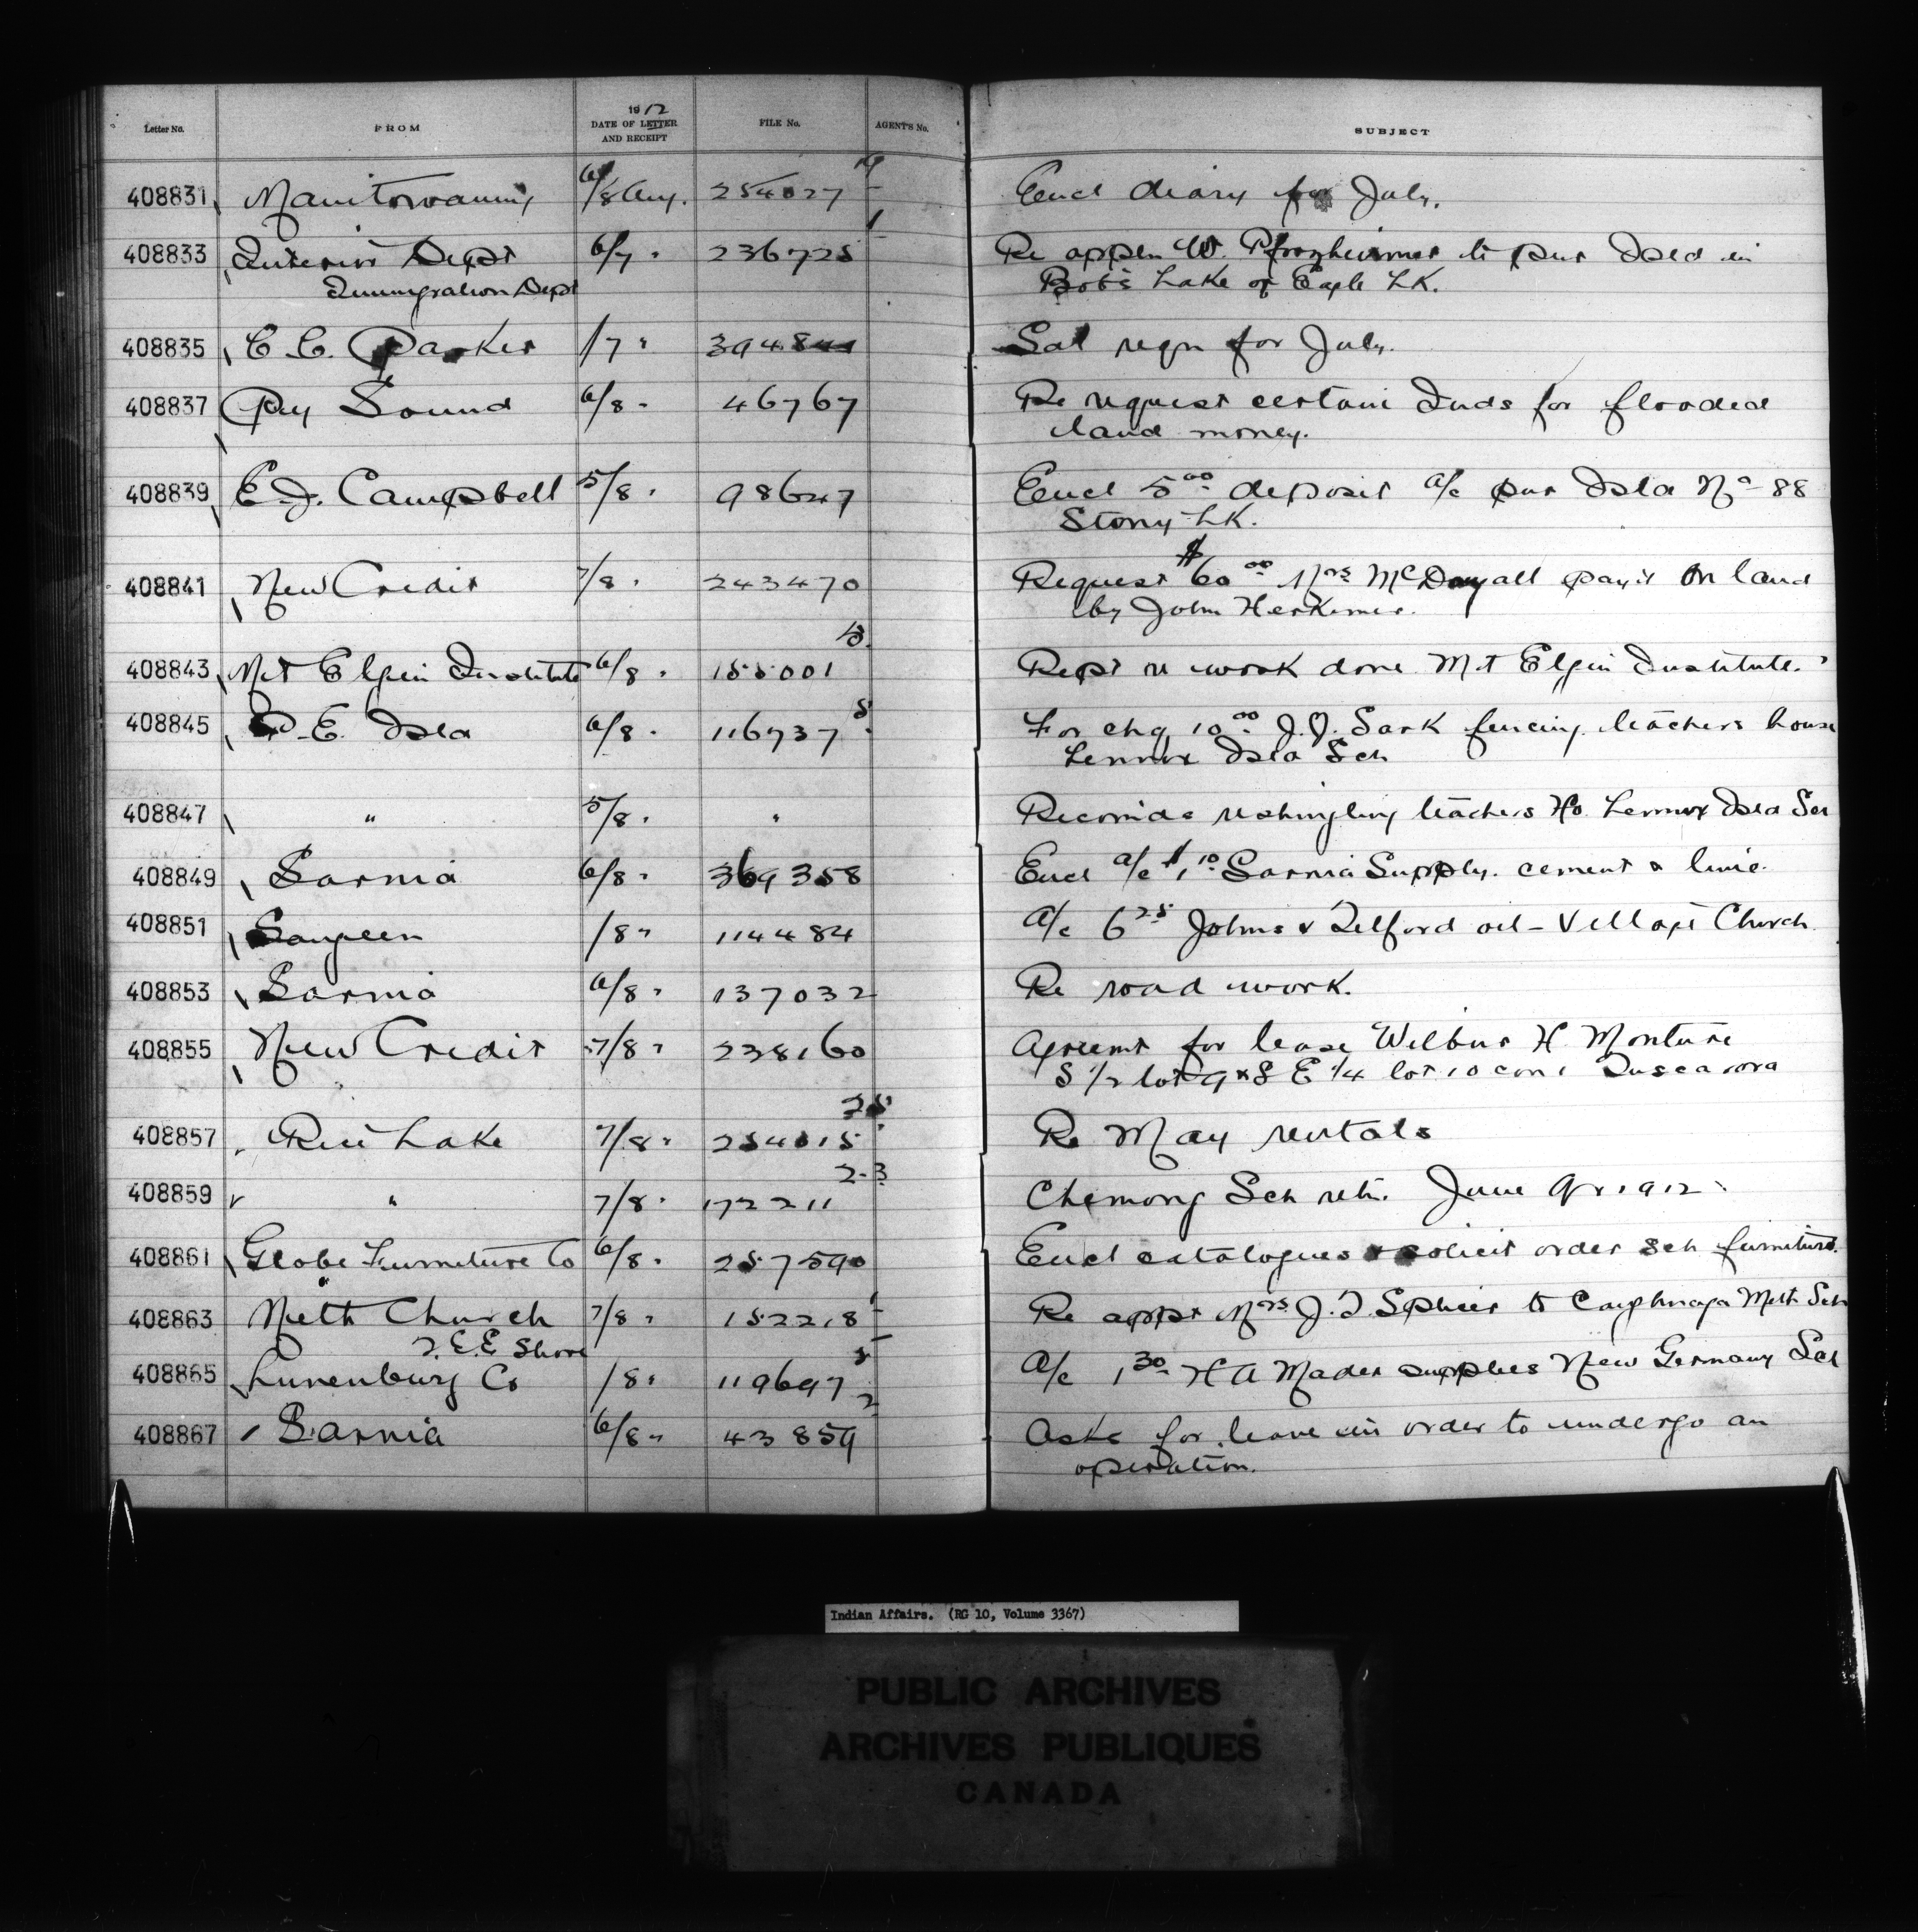 Letter No. FROM 1912 DATE OF LETTER AND RECEIPT FILE No. AGENT'S No. SUBJECT
408831 Manitowaning 6/8 Aug. 254027 19 Encl diary for July.
408833 Interior Dept 6/7 " 236725 1 Re appln W. to pur Isld in
Immigration Dept Bob's Lake or Eagle Lk.
408835 C. C. Parker /7 " Sal reqn for July.
408837 Pry Sound 6/8 " 46767 Re request certain Inds for flooded
land money.
408839 E J. Campbell 5/8 " 98647 Encl 5 00 deposit a/c pur Isld No 88
Stony Lk.
408841 New Credit 7/8 " 243470 Request $60 00 Mrs McDougall pay't on land
by John Herkimer.
408843 Mt Elgin Institute 6/8 " 155001 Rept re work done Mt Elgin Institute.
408845 P. E. Isld 6/8 " 116737 5 For chq 10 00 J. J. Sark fencing teachers house
Lennox Isld Sch
408847 " 5/8 " " Recomds reshingling teachers Ho. Lennox Isld Sch
408849 Sarnia 6/8 " 369358 Encl a/c $1 10 Sarnia Supply. cement & lime.
408851 Saugeen /8 " 114484 a/c 6 25 Johns & Telford oil - Village Church
408853 Sarnia 6/8 " 137032 Re road work.
408855 New Credit 7/8 " 238160 Agreemt for lease Wilbur H Monture
S 1/2 lot 9 & S E 1/4 lot 10 con 1 Tuscarora
408857 Rice Lake 7/8 " 254015 25 Re May rentals
408859 " 7/8 " 172211 2-3 Chemong Sch retn. June Qr 1912
408861 Globe Furniture Co 6/8 " 257590 Encl catalogues & solicit order sch furniture.
408863 Meth Church 7/8 " 152218 1 Re appt Mrs J. to Caughnaga Meth Sch
T. E. E Shore
408865 Lunenburg Co /8 " 119697 5 a/c 1 30 H A Mader supplies New Germany Sch
408867 Sarnia 6/8 " 43859 2 Asks for leave in order to undergo an
operation.
Indian Affairs. (RG 10, Volume 3367)
PUBLIC ARCHIVES
ARCHIVES PUBLIQUES
CANADA